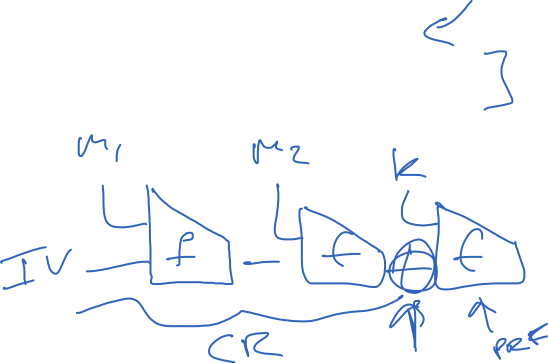 M1 M2 K
IV f f f
CR PRF